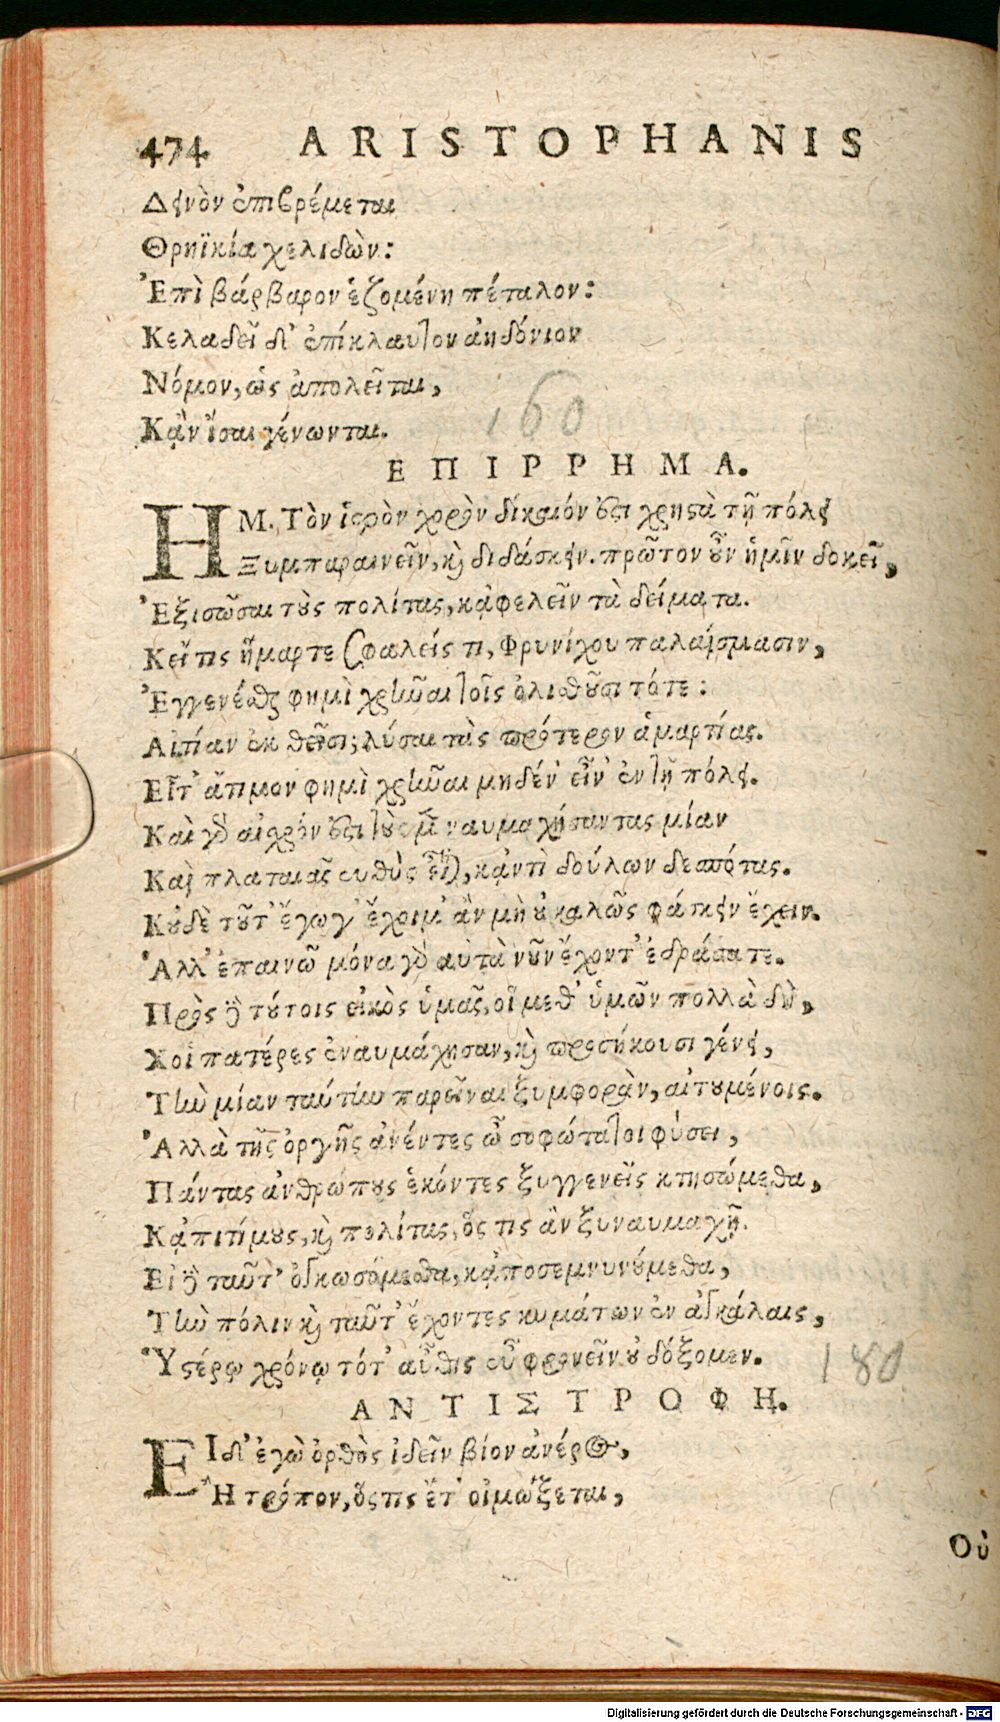 474 ARISTOPHANIS
Δεινὸν ἐπιβρέμεται
Θρηϊκία χελιδὼν:
Ἐπὶ βάρβαρον ἑζομένη πέταλον:
Κελαδεῖ δ' ἐπίκλαυτον ἀηδόνιον
Νόμον, ὡς ἀπολεῖται,
Κᾂν ἴσαι γένωνται.
160
ΕΠΙΡΡΗΜΑ.
ΗΜ. Τὸν ἱερὸν χορὸν δίκαιόν ἐστι χρηστὰ τῇ πόλει
Ξυμπαραινεῖν, καὶ διδάσκειν. πρῶτον οὖν ἡμῖν δοκεῖ,
Ἐξισῶσαι τοὺς πολίτας, κᾀφελεῖν τὰ δείματα.
Κεἴ τις ἥμαρτε σφαλείς τι, Φρυνίχου παλαίσμασιν,
Ἐγγενέσθαι φημὶ χρῆναι τοῖς ὀλισθοῦσι τότε:
Αἰτίαν ἐκθεῖσι; λῦσαι τὰς πρότερον ἁμαρτίας.
Εἶτ' ἄτιμον φημὶ χρῆναι μηδέν' εἶν' ἐν τῇ πόλει.
Καὶ γὰρ αἰσχρόν ἐστι τοὺς μὲν ναυμαχήσαντας μίαν
Καὶ πλαταιᾶς εὐθὺς εἶναι, κᾀντὶ δούλων δεσπότας.
Κοὐδὲ τοῦτ' ἔγωγ' ἔχοιμ' ἂν μὴ οὐ καλῶς φάσκειν ἔχειν.
Ἀλλ' ἐπαινῶ μόνα γὰρ αὐτὰ νοῦν ἔχοντ' ἐδράσατε.
Πρὸς δὲ τούτοις εἰκὸς ὑμᾶς, οἳ μεθ' ὑμῶν πολλὰ δὴ,
Χοἱ πατέρες ἐναυμάχησαν, καὶ προσήκουσι γένει,
Τὴν μίαν ταύτην παρεῖναι ξυμφορὰν, αἰτουμένοις.
Ἀλλὰ τῆς ὀργῆς ἀνέντες ὦ σοφώτατοι φύσει,
Πάντας ἀνθρώπους ἑκόντες ξυγγενεῖς κτησώμεθα,
Κᾀπιτίμους, καὶ πολίτας, ὅς τις ἂν ξυναυμαχῇ.
Εἰ δὲ ταῦτ' ὀγκωσόμεσθα, κᾀποσεμνυνούμεθα,
Τὴν πόλιν καὶ ταῦτ' ἔχοντες κυμάτων ἐν ἀγκάλαις,
Ὑστέρῳ χρόνῳ τότ' αὖθις εὖ φρονεῖν οὐ δόξομεν.
180
ΑΝΤΙΣΤΡΟΦΗ.
ΕΙ δ' ἐγὼ ὀρθὸς ἰδεῖν βίον ἀνέρος,
Ἢ τρόπον, ὅςτις ἔτ' οἰμώξεται,
Οὐ
Digitalisierung gefördert durch die Deutsche Forschungsgemeinschaft - DFG